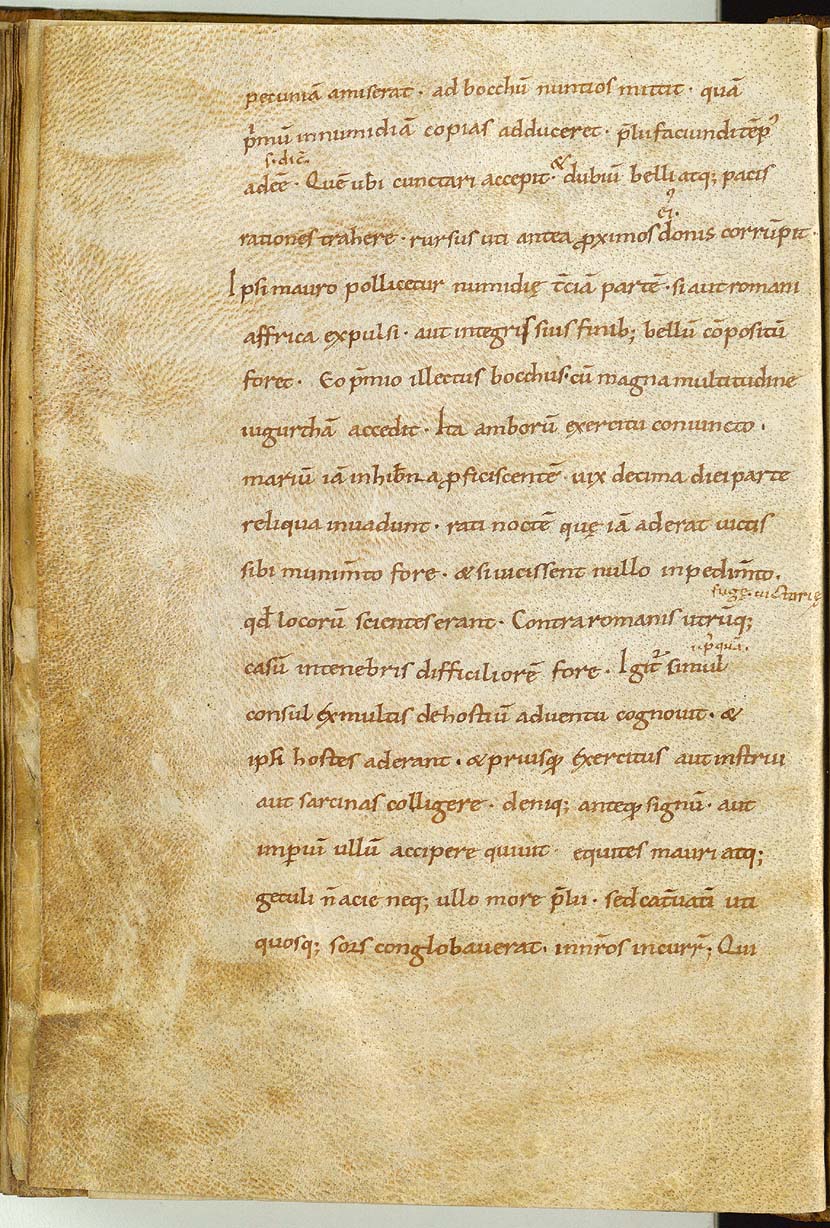 pecuniā amiserat · ad bocchū nuntios mittit · quā
p̄mū innumidiā copias adduceret · p̄lii faciundi tēp᾿
s· dic̄
adeē · Quē ubi cunctari accepit · & dubiū belli atq; pacis
ei᾿
rationes trahere · rursus uti antea ꝓximos donis corrūpit ·
Ipsi mauro pollicetur numidię t̄ciā partē · si aut romani
affrica expulsi · aut integris suis finib; bellū cōpositū
foret · Eo p̄mio illectus bocchus · cū magna multitudine
iugurthā accedit · Ita amborū exercitu coniuncto ·
mariū iā inhib̄na ꝓficiscentē · uix decima diei parte
reliqua inuadunt · rati noctē quę iā aderat uictis
sibi munim̄to fore · & si uicissent nullo inpedim̄to ·
fugę · uictorię
qđ locorū scientes erant · Contra romanis utrūq;
casū intenebris difficiliorē fore · Igit᷑ simul
consul exmultis dehostiū aduentu cognouit · &
ipsi hostes aderant · & priusꝗ exercitus aut instrui
aut sarcinas colligere · deniq; anteꝗ signū · aut
imꝑiū ullū accipere quiuit · equites mauri atq;
getuli n̄ acie neq; ullo more p̄lii · sed cat̄uatī uti
quosq; sors conglobauerat · inn̄ros incurr̄; Qui